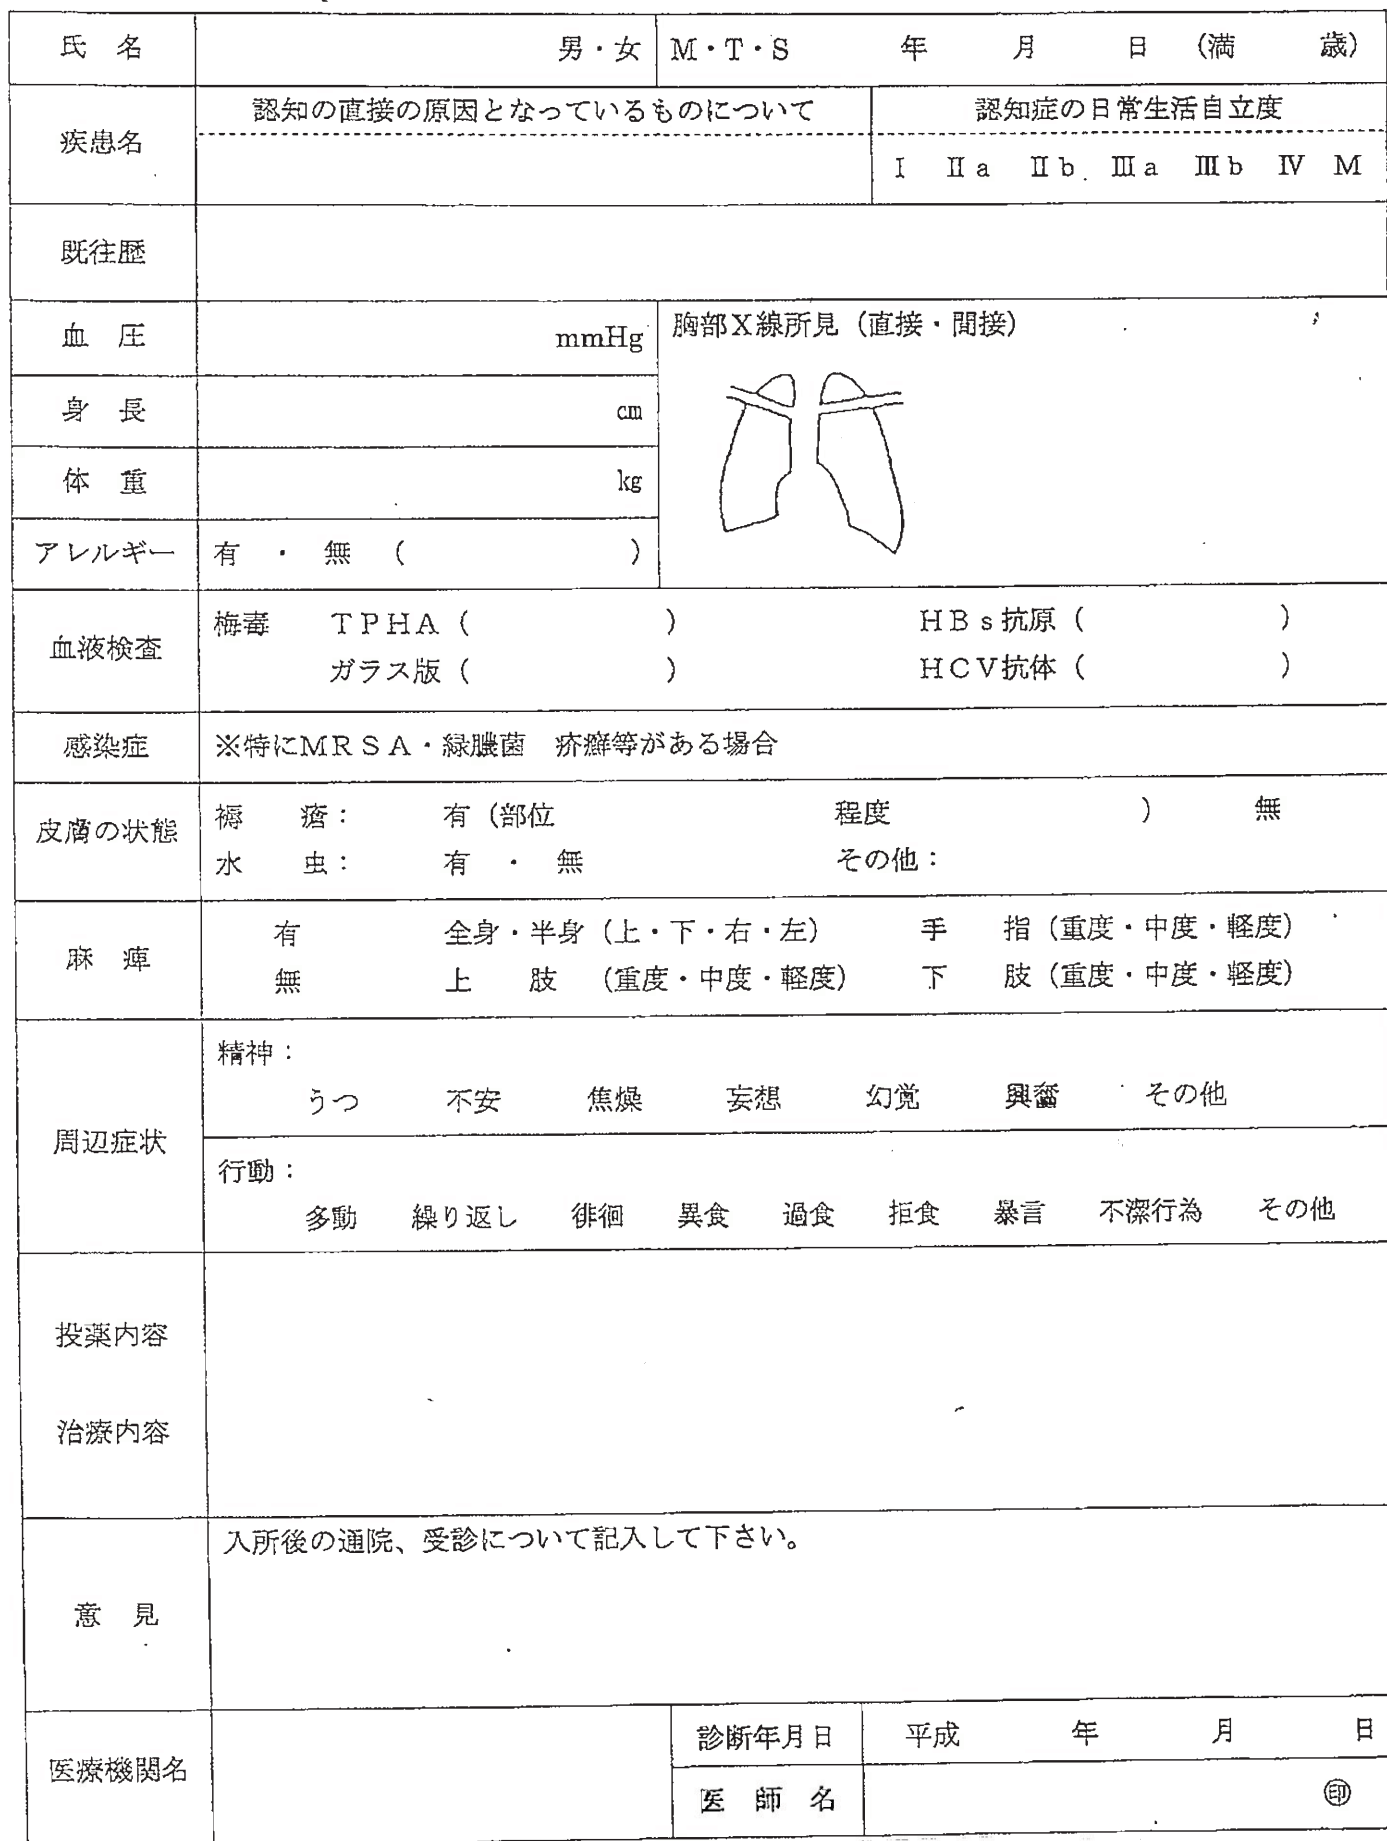 氏 名 男・女 M・T・S 年 月 日 (満 歳)
疾患名
認知の直接の原因となっているものについて
認知症の日常生活自立度
Ⅰ Ⅱa Ⅱb Ⅲa Ⅲb Ⅳ M
既往歴
血 圧 mmHg
胸部X線所見 (直接・間接)
身 長 cm
体 重 kg
アレルギー 有 ・ 無 ( )
血液検査
梅毒 TPHA ( ) HBs抗原 ( )
ガラス版 ( ) HCV抗体 ( )
感染症 ※特にMRSA・緑膿菌 疥癬等がある場合
皮膚の状態
褥 瘡: 有 (部位 程度 ) 無
水 虫: 有 ・ 無 その他:
麻 痺
有 全身・半身 (上・下・右・左) 手 指 (重度・中度・軽度)
無 上 肢 (重度・中度・軽度) 下 肢 (重度・中度・軽度)
周辺症状
精神:
うつ 不安 焦燥 妄想 幻覚 興奮 その他
行動:
多動 繰り返し 徘徊 異食 過食 拒食 暴言 不潔行為 その他
投薬内容
治療内容
意 見
入所後の通院、受診について記入して下さい。
医療機関名
診断年月日 平成 年 月 日
医 師 名 ㊞